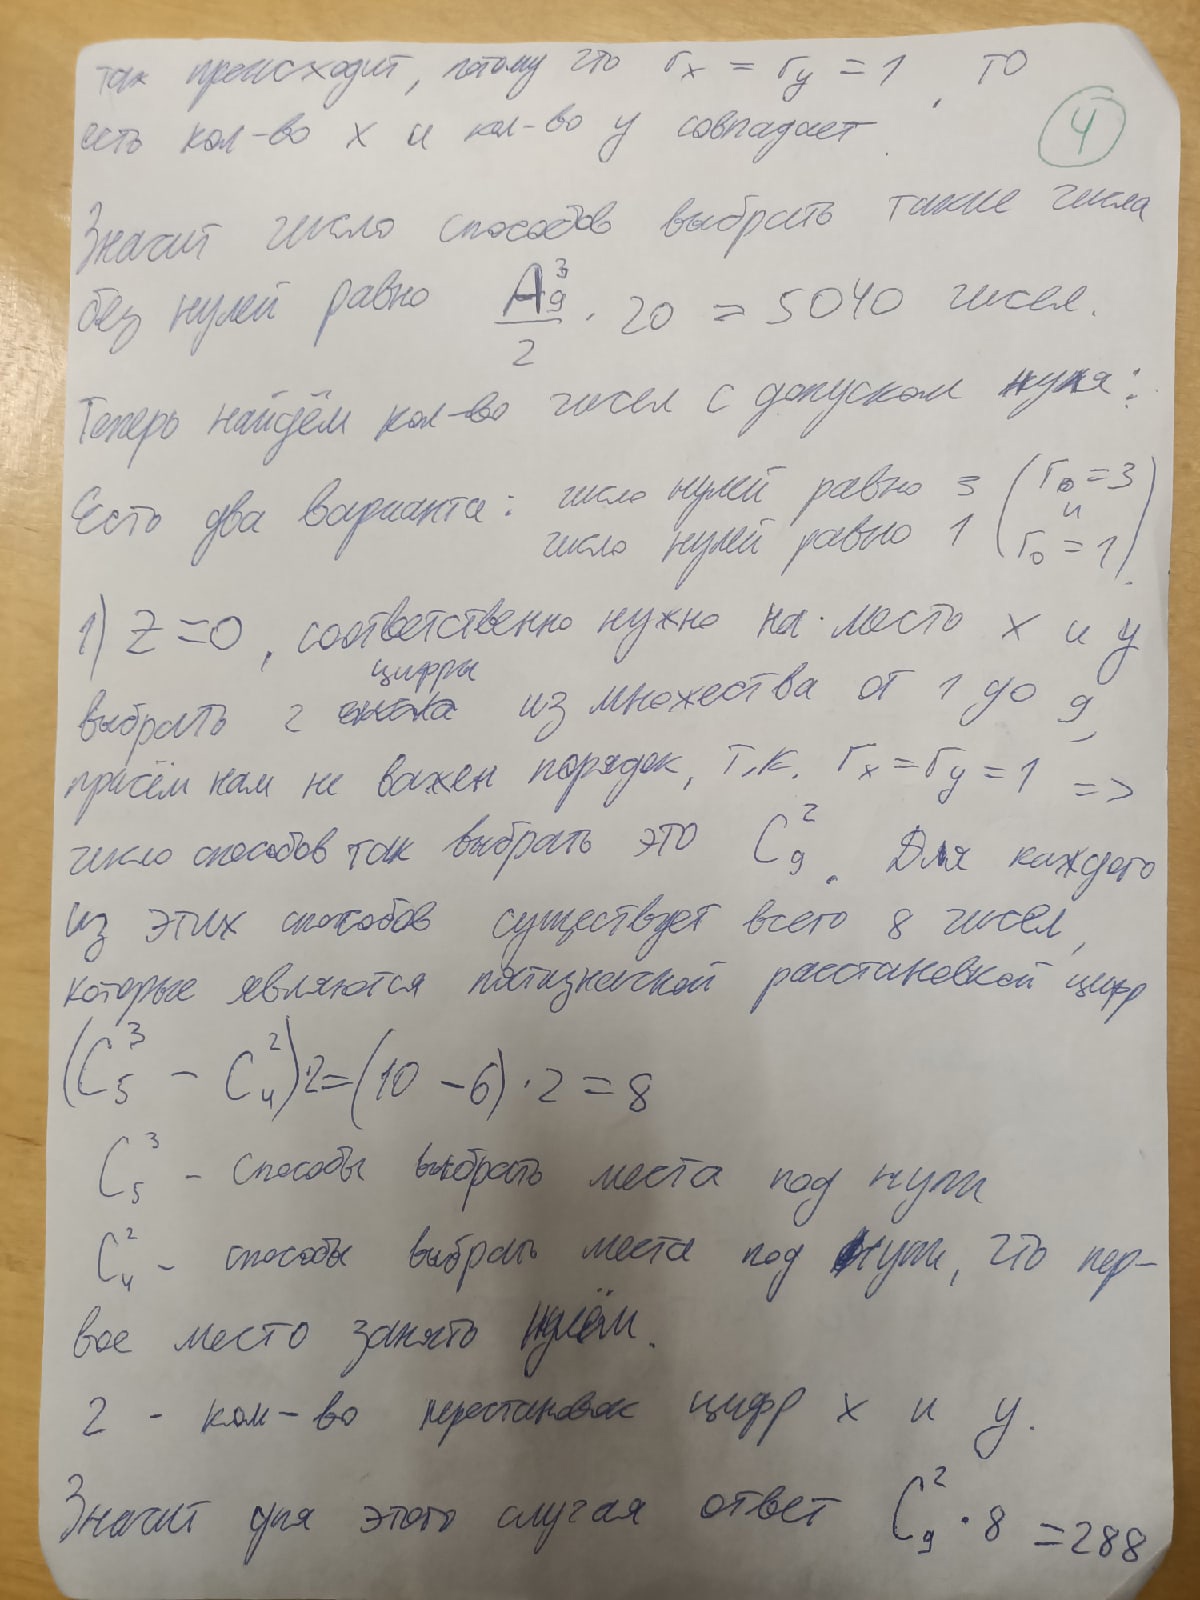 так происходит, потому что r_x = r_y = 1, то
есть кол-во x и кол-во y совпадает.
4
Значит число способов выбрать такие числа
без нулей равно A_9^3/2 · 20 = 5040 чисел.
Теперь найдём кол-во чисел с допуском нуля:
Есть два варианта: число нулей равно 3 (r_0 = 3
и
число нулей равно 1 r_0 = 1).
1) z = 0, соответственно нужно на место x и y
цифры
выбрать 2 из множества от 1 до 9,
причём нам не важен порядок, т.к. r_x = r_y = 1 =>
число способов так выбрать это C_9^2. Для каждого
из этих способов существует всего 8 чисел,
которые являются пятизначной расстановкой цифр
(C_5^3 - C_4^2)·2 = (10 - 6) · 2 = 8
C_5^3 - способы выбрать места под нули
C_4^2 - способы выбрать места под нули, что пер-
вое место занято нулём.
2 - кол-во перестановок цифр x и y.
Значит для этого случая ответ C_9^2 · 8 = 288